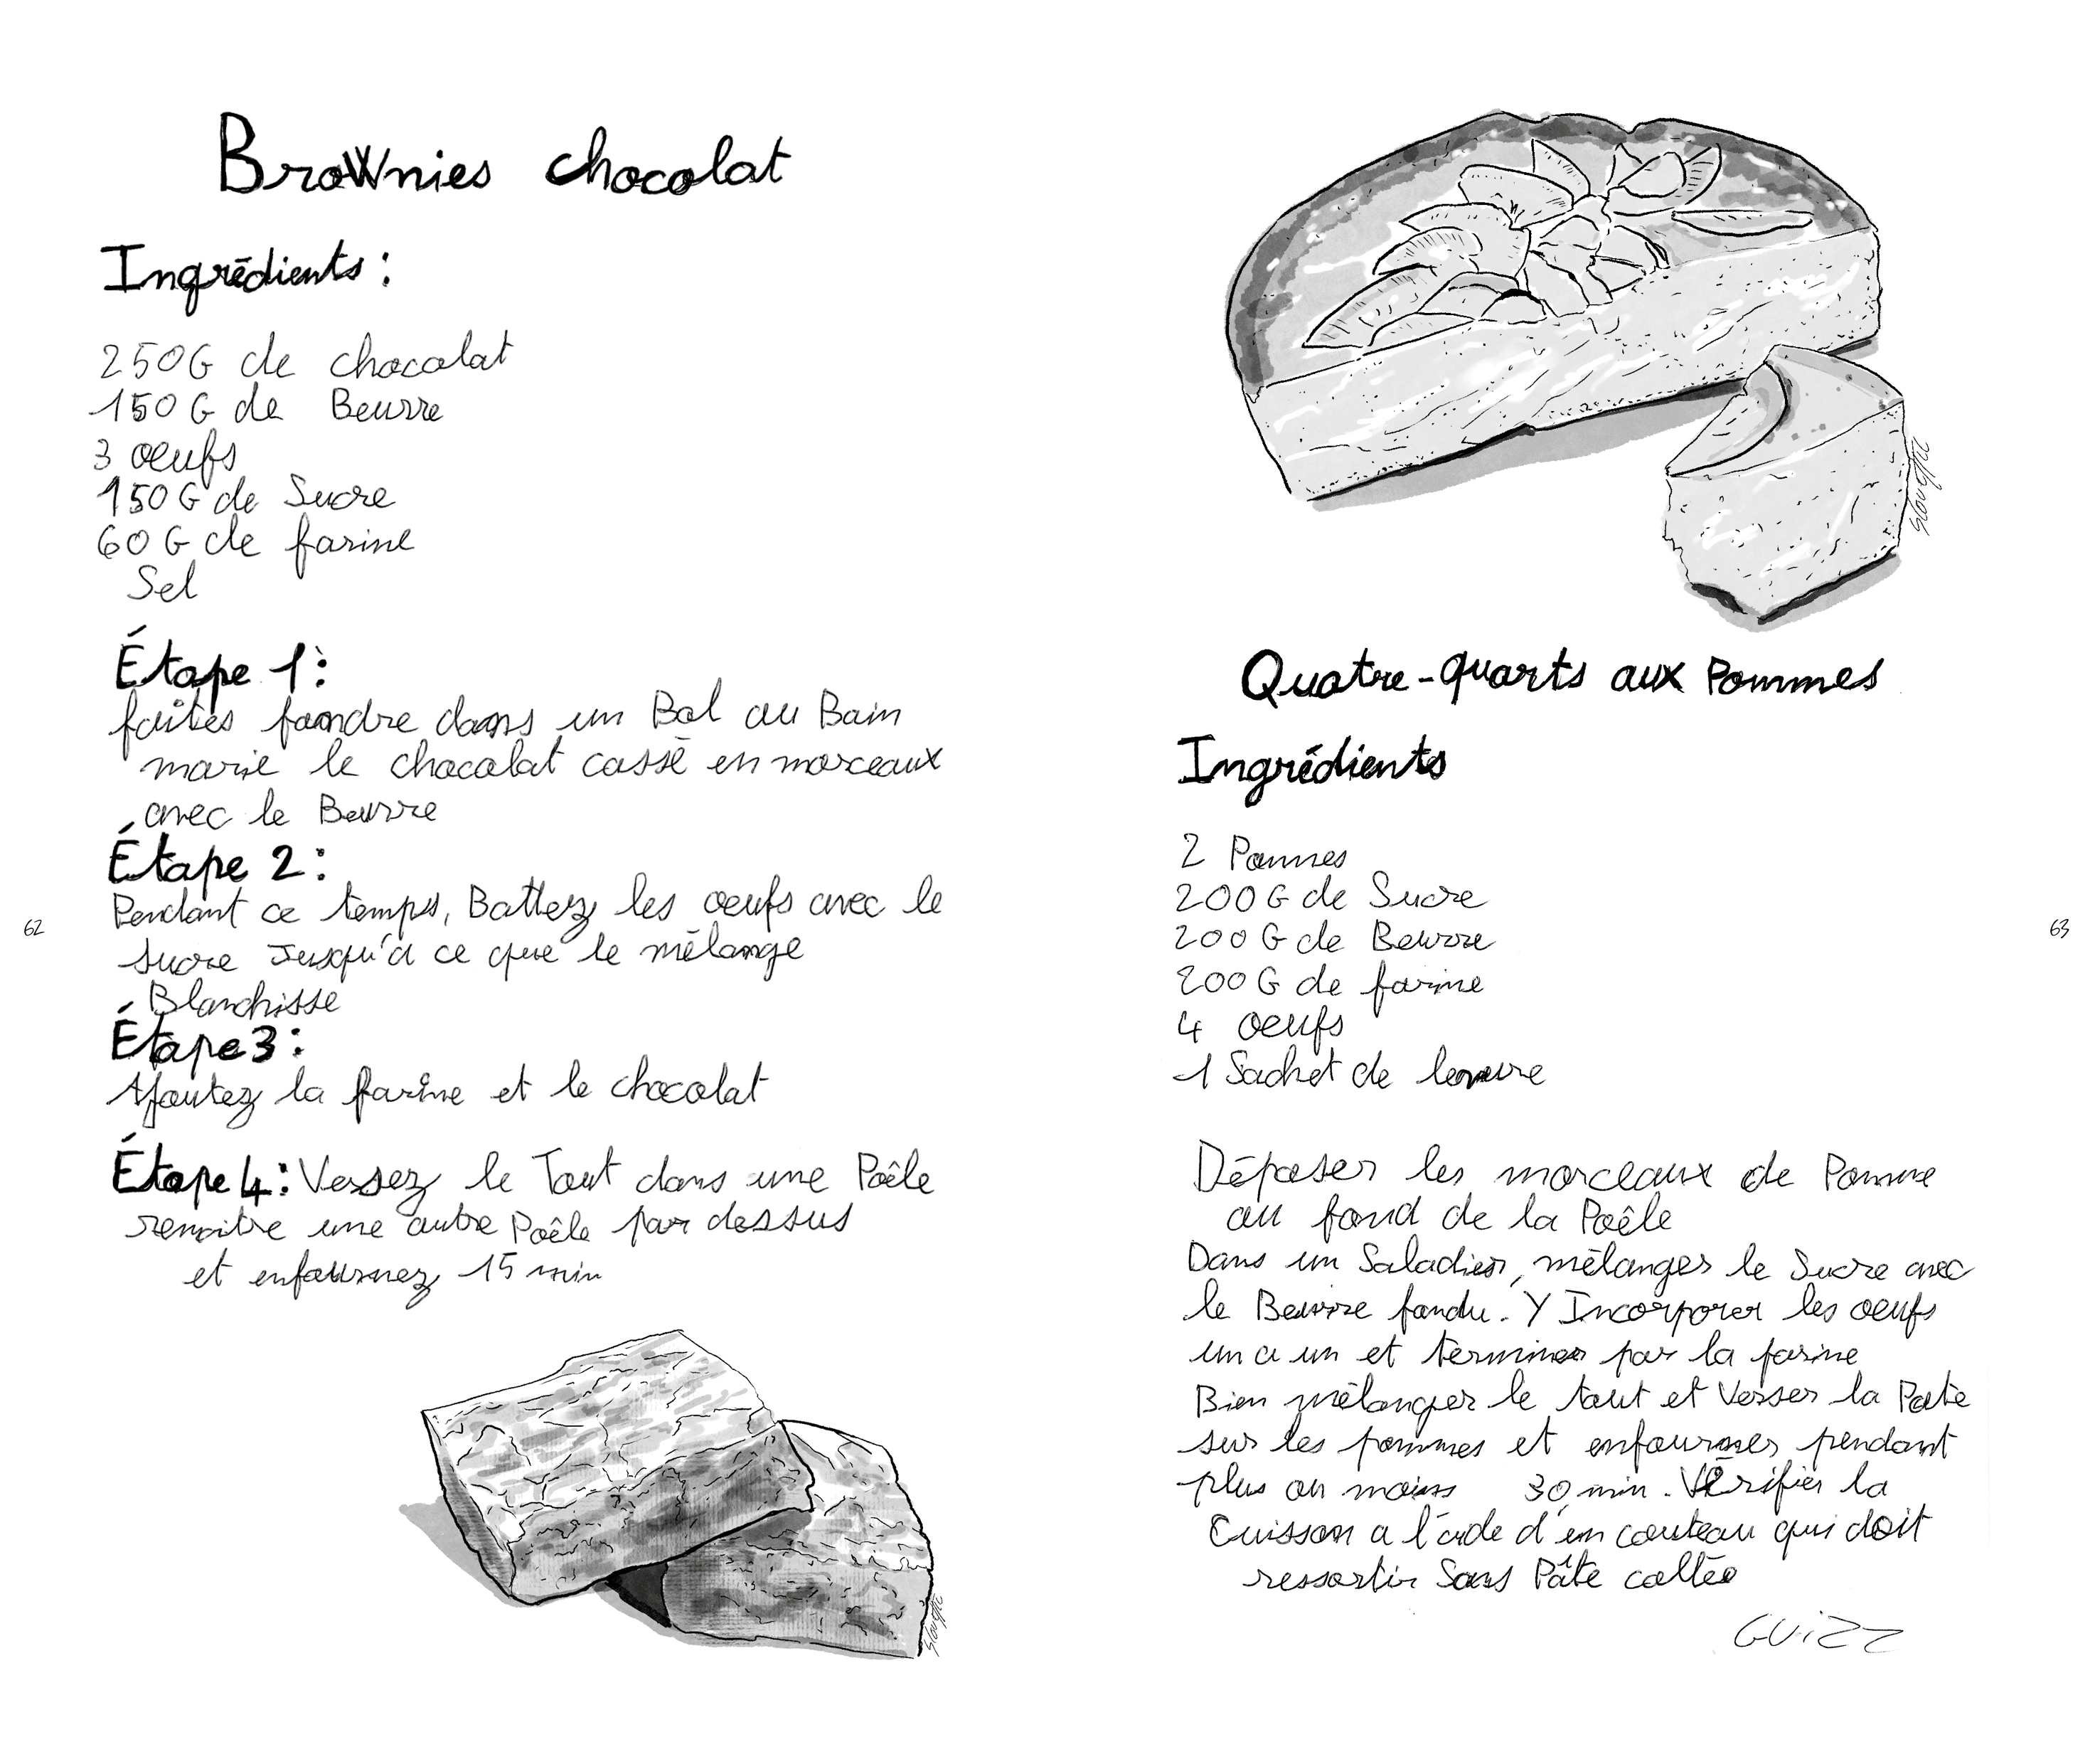 Brownies chocolat
Ingrédients :
250G de chocolat
150G de Beurre
3 oeufs
150G de Sucre
60G de farine
Sel
Étape 1 :
faites fondre dans un Bol au Bain
marie le chocolat cassé en morceaux
avec le Beurre
Étape 2 :
Pendant ce temps, Battez les oeufs avec le
sucre Jusqu'à ce que le mélange
Blanchisse
Étape 3 :
Ajoutez la farine et le chocolat
Étape 4 : Versez le Tout dans une Poêle
remettre une autre Poêle par dessus
et enfournez 15 min
Slouffie
62
Slouffie
Quatre-quarts aux Pommes
Ingrédients
2 Pommes
200G de Sucre
200G de Beurre
200G de farine
4 oeufs
1 Sachet de levure
Déposer les morceaux de Pomme
au fond de la Poêle
Dans un Saladier, mélanger le Sucre avec
le Beurre fondu. Y Incorporer les oeufs
un a un et terminer par la farine
Bien mélanger le tout et Verser la Pate
sur les pommes et enfourner pendant
plus ou moins 30 min. Vérifier la
Cuisson a l'aide d'un couteau qui doit
ressortir Sans Pâte collée
GUIZZ
63